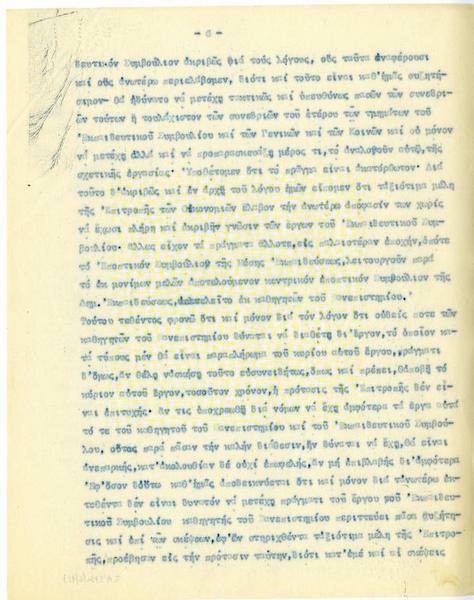 - 6 -
δευτικόν Συμβούλιον ἀκριβῶς διά τούς λόγους, οὕς ταῦτα ἀναφέρουσι
καί οὕς ἀνωτέρω περιελάβομεν, διότι καί τοῦτο εἶναι καθ'ἡμᾶς συζητή-
σιμον- θά ἠδύνατο νά μετέχῃ τακτικῶς καί ὑπευθύνως πασῶν τῶν συνεδρι-
ῶν τούτων ἤ τουλάχιστον τῶν συνεδριῶν τοῦ ἑτέρου τῶν τμημάτων τοῦ
Ἐκπαιδευτικοῦ Συμβουλίου καί τῶν Γενικῶν καί τῶν Κοινῶν καί οὐ μόνον
νά μετέχῃ ἀλλά καί νά προπαρασκευάζῃ μέρος τι, τό ἀναλογοῦν αὐτῷ, τῆς
σχετικῆς ἐργασίας. Ὑποθέτομεν ὅτι τό πρᾶγμα εἶναι ἀκατόρθωτον. Διά
τοῦτο δ'ἀκριβῶς καί ἐν ἀρχῇ τοῦ λόγου ἡμῶν εἴπομεν ὅτι τἀξιότιμα μέλη
τῆς Ἐπιτροπῆς τῶν Οἰκονομιῶν ἔλαβον τήν ἀνωτέρω ἀπόφασίν των χωρίς
νά ἔχωσι πλήρη καί ἀκριβῆ γνῶσιν τῶν ἔργων τοῦ Ἐκπαιδευτικοῦ Συμ-
βουλίου. Ἄλλως εἶχον τά πράγματα ἄλλοτε, εἰς παλαιοτέραν ἐποχήν, ὁπότε
τό Ἐποπτικόν Συμβούλιον τῆς Μέσης Ἐκπαιδεύσεως, λειτουργοῦν παρά
τό ἐκ μονίμων μελῶν ἀποτελούμενον κεντρικόν ἐποπτικόν Συμβούλιον τῆς
Δημ. Ἐκπαιδεύσεως, ἀπετελεῖτο ἐκ καθηγητῶν τοῦ Πανεπιστημίου.
Τούτου τεθέντος φρονῶ ὅτι καί μόνον διά τόν λόγον ὅτι οὐδείς ποτε τῶν
καθηγητῶν τοῦ Πανεπιστημίου δύναται νά διαθέτῃ δι'ἔργον, τό ὁποῖον κα-
τά τύπους μέν θά εἶναι παραπλήρωμα τοῦ κυρίου αὐτοῦ ἔργου, πράγματι
δ'ὅμως, ἄν θέλῃ νἀσκήσῃ τοῦτο εὐσυνειδήτως, ὅπως καί πρέπει, θ'ἀποβῇ τό
κύριον αὐτοῦ ἔργον, τοσοῦτον χρόνον, ἡ πρότασις τῆς Ἐπιτροπῆς δέν εἶ-
ναι ἐπιτυχής. Ἄν τις ὑποχρεωθῇ διά νόμων νά ἔχῃ ἀμφότερα τά ἔργα αὐτά
τό τε τοῦ καθηγητοῦ τοῦ Πανεπιστημίου καί τοῦ Ἐκπαιδευτικοῦ Συμβού-
λου, οὗτος παρά πᾶσαν τήν καλήν διάθεσιν, ἥν δύναται νά ἔχῃ, θά εἶναι
ἀνεπαρκής, κατ'ἀκολουθίαν δέ οὐχί ἐπωφελής, ἄν μή ἐπιβλαβής δι'ἀμφότερα
Ἐφ'ὅσον δ'οὕτω καθ'ἡμᾶς ἀποδεικνύεται ὅτι καί μόνον διά τἀνωτέρω ἐκ-
τεθέντα δέν εἶναι δυνατόν νά μετέχῃ πράγματι τοῦ ἔργου τοῦ Ἐκπαιδευ-
τικοῦ Συμβουλίου καθηγητής τοῦ Πανεπιστημίου περιττεύει πᾶσα συζήτη-
σις καί ἐπί τῶν σκέψεων, ἐφ'ὧν στηριχθέντα τἀξιότιμα μέλη τῆς Ἐπιτρο-
πῆς, προέβησαν εἰς τήν πρότασιν ταύτην, διότι κατ'ἐμέ καί αἱ σκέψεις